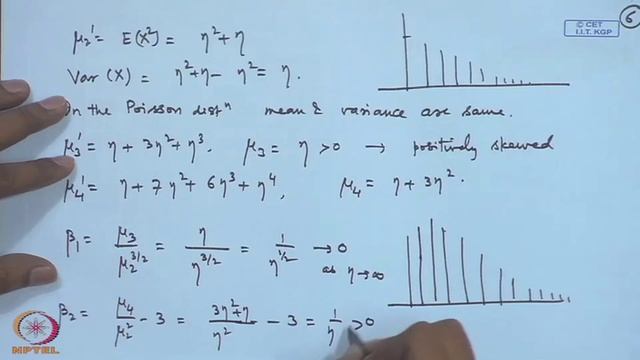 6
© CET
I.I.T. KGP
μ₂' = E(X²) = η² + η
Var (X) = η² + η − η² = η.
In the Poisson distⁿ mean & variance are same.
μ₃' = η + 3η² + η³. μ₃ = η > 0 → positively skewed
μ₄' = η + 7η² + 6η³ + η⁴, μ₄ = η + 3η².
β₁ = μ₃ / μ₂^{3/2} = η / η^{3/2} = 1 / η^{1/2} → 0
as η → ∞
β₂ = μ₄ / μ₂² − 3 = (3η² + η) / η² − 3 = 1 / η > 0
NPTEL